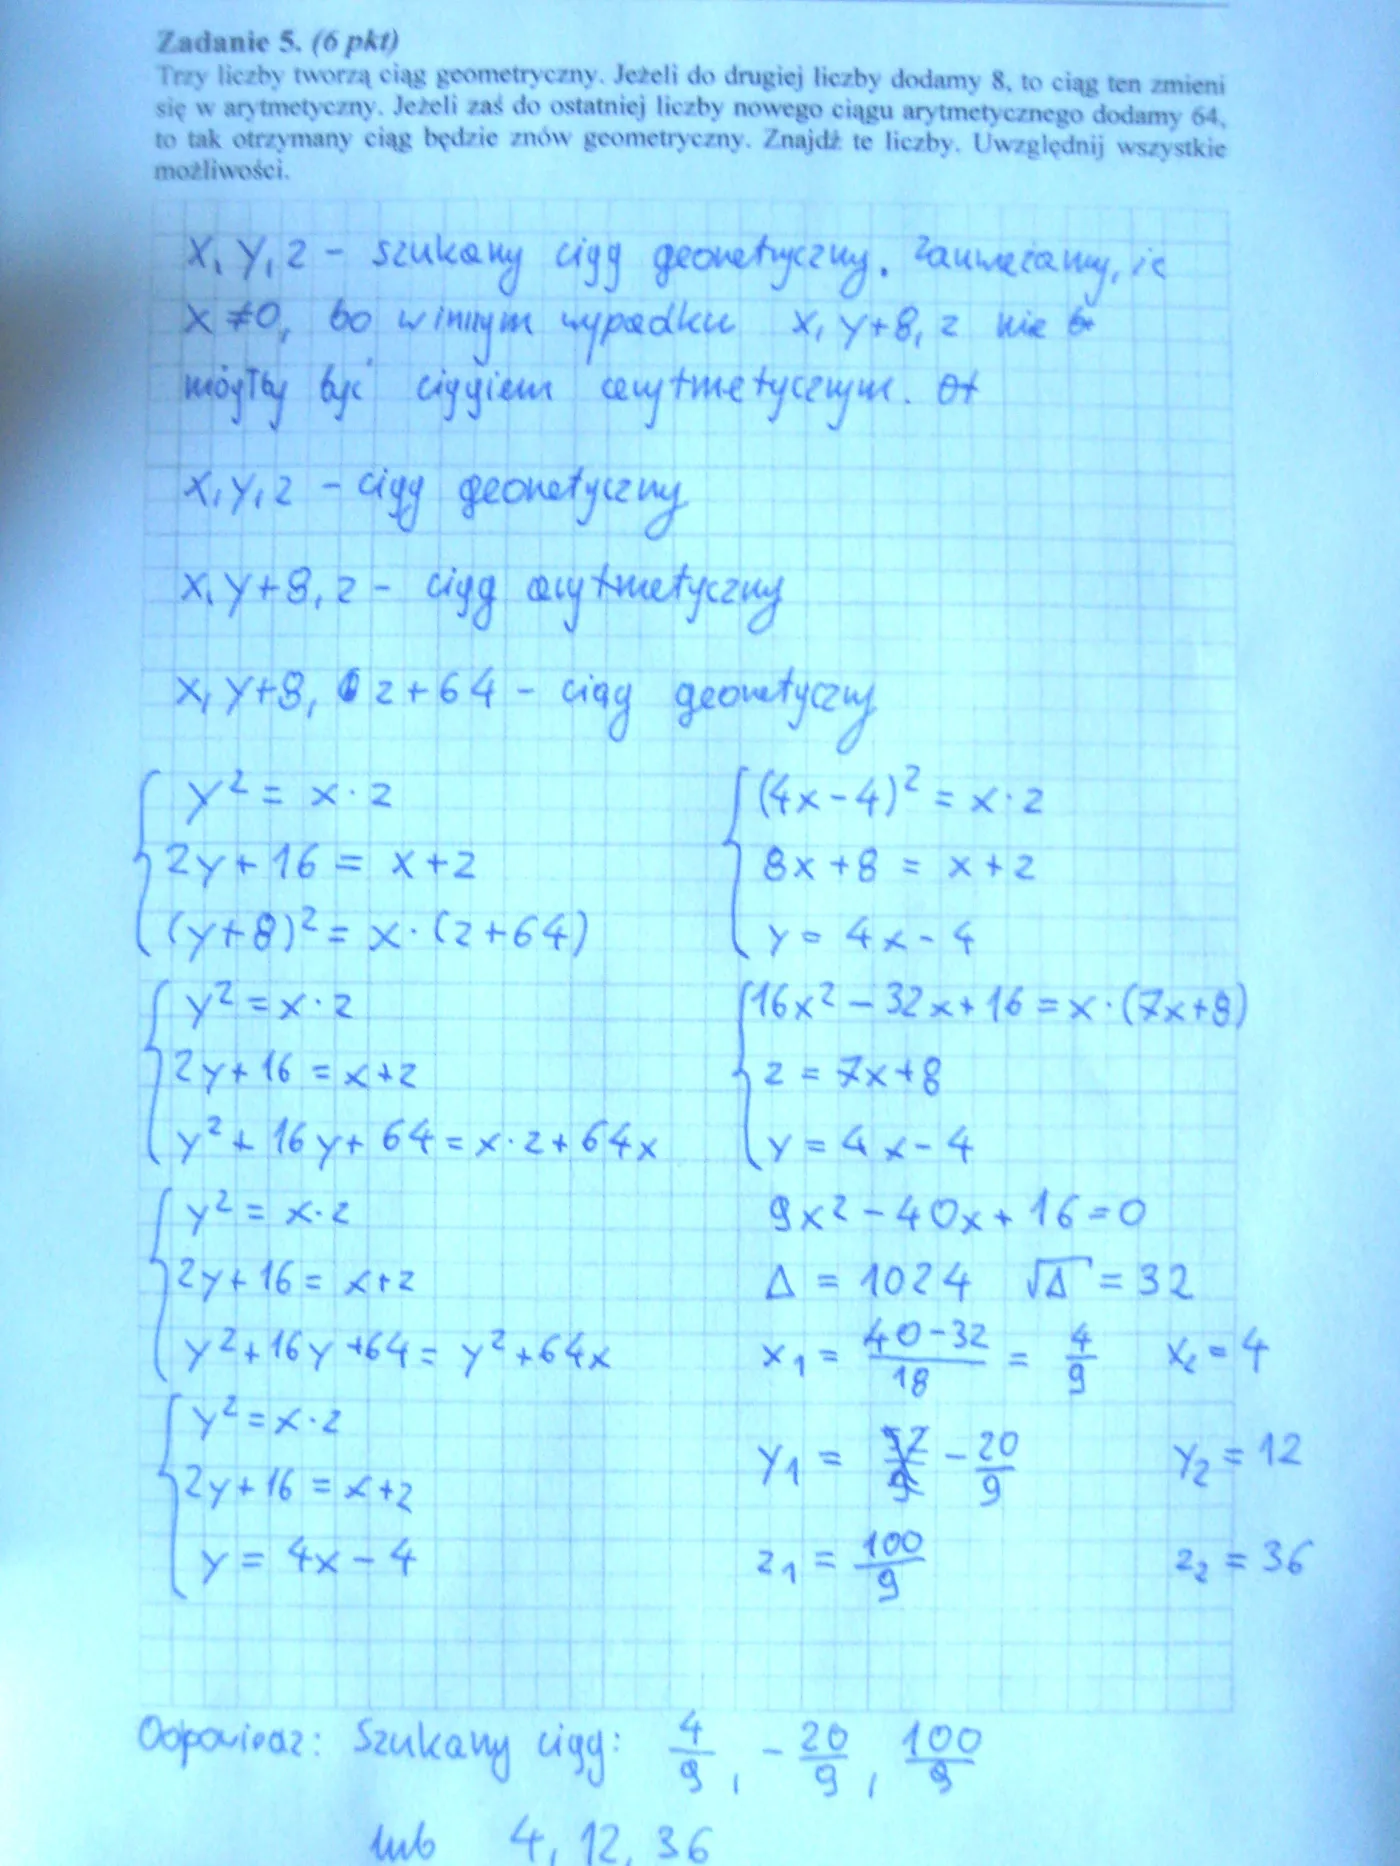 Zadanie 5. (6 pkt)
Trzy liczby tworzą ciąg geometryczny. Jeżeli do drugiej liczby dodamy 8, to ciąg ten zmieni
się w arytmetyczny. Jeżeli zaś do ostatniej liczby nowego ciągu arytmetycznego dodamy 64,
to tak otrzymany ciąg będzie znów geometryczny. Znajdź te liczby. Uwzględnij wszystkie
możliwości.
x, y, z - szukany ciąg geometryczny. Zauważamy, że
x ≠ 0, bo w innym wypadku x, y+8, z nie
mógłby być ciągiem arytmetycznym.
x, y, z - ciąg geometryczny
x, y+8, z - ciąg arytmetyczny
x, y+8, z+64 - ciąg geometryczny
y² = x·z
2y+16 = x+z
(y+8)² = x·(z+64)
y² = x·z
2y+16 = x+z
y²+16y+64 = x·z+64x
y² = x·z
2y+16 = x+z
y²+16y+64 = y²+64x
y² = x·z
2y+16 = x+z
y = 4x-4
(4x-4)² = x·z
8x+8 = x+z
y = 4x-4
16x²-32x+16 = x·(7x+8)
z = 7x+8
y = 4x-4
9x²-40x+16=0
Δ = 1024 √Δ = 32
x₁ = (40-32)/18 = 4/9 x₂ = 4
y₁ = -20/9 y₂ = 12
z₁ = 100/9 z₂ = 36
Odpowiedz: Szukany ciąg: 4/9, -20/9, 100/9
lub 4, 12, 36